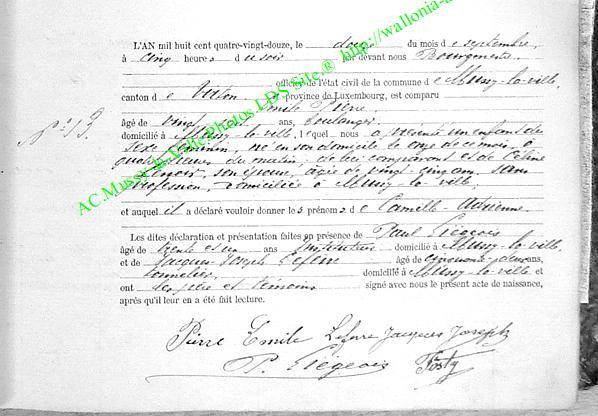 L'AN mil huit cent quatre-vingt-douze, le douze du mois de septembre,
à cinq heures du soir par devant nous Bourgmestre
officier de l'état civil de la commune de Mussy-la-ville,
canton de Virton province de Luxembourg, est comparu
Emile Pierre
âgé de vingt ans, boulanger
domicilié à Mussy-la-ville, lequel nous a présenté un enfant du
sexe féminin, né en son domicile le onze de ce mois, à
quatre heures du matin, de lui comparant et de Céline
Lenoir, son épouse, agée de vingt-cinq ans, sans
profession, domiciliée à Mussy-la-ville,
et auquel il a déclaré vouloir donner les prénoms de Camille-Adrienne
Les dites déclaration et présentation faites en présence de Paul Liégeois
âgé de trente et un ans instituteur domicilié à Mussy-la-ville,
et de Jacques-Joseph Lefèvre âgé de cinquante-deux ans,
tonnelier, domicilié à Mussy-la-ville et
ont les père et témoins signé avec nous le présent acte de naissance,
après qu'il leur en a été fait lecture.
Pierre Emile Lefevre Jacques Joseph
P. Liégeois Fosty
N° 19.
AC.Mussy-la-Ville Photos LDS Site.® http://wallonia-a